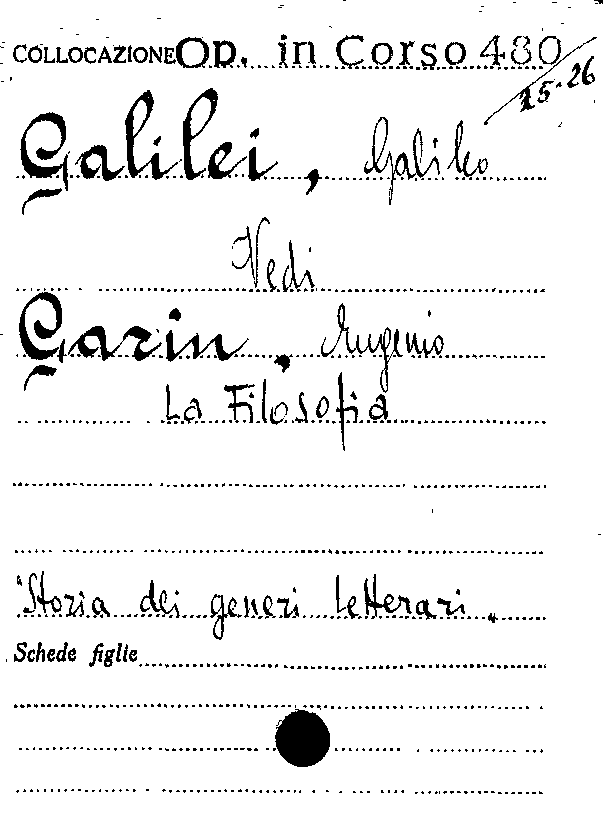 COLLOCAZIONE Op. in Corso 480/25-26
Galilei, Galileo
Vedi
Garin, Eugenio
La Filosofia
"Storia dei generi letterari"
Schede figlie